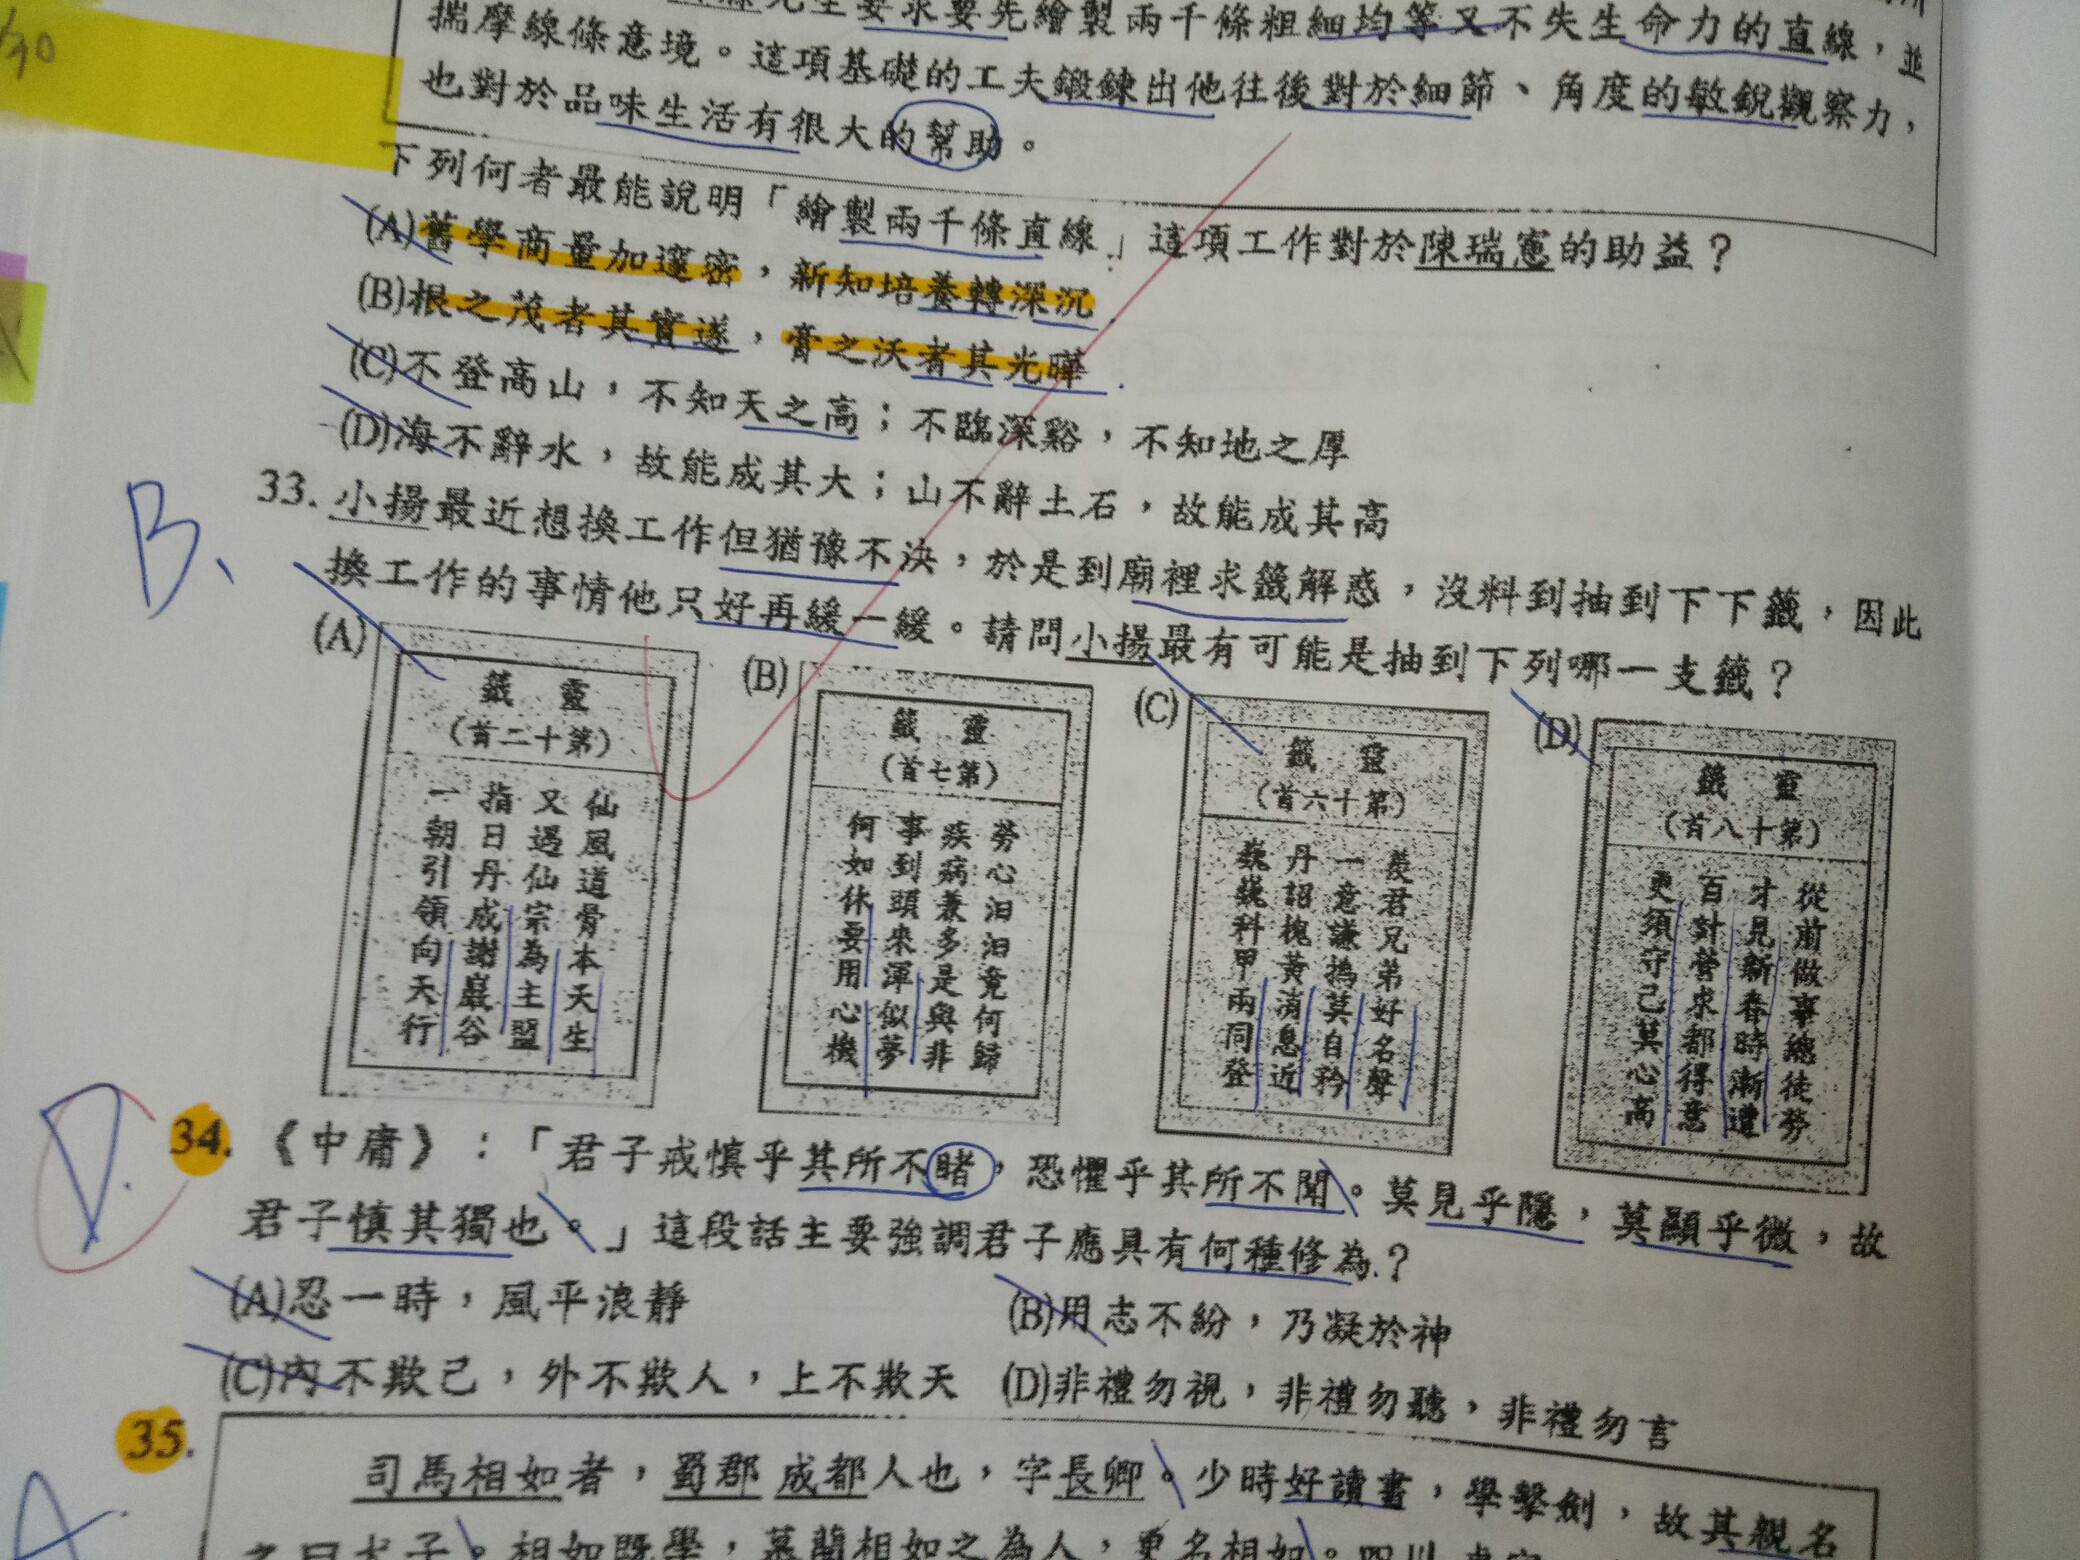 先生要求要先繪製兩千條粗細均等又不失生命力的直線，並
揣摩線條意境。這項基礎的工夫鍛鍊出他往後對於細節、角度的敏銳觀察力，
也對於品味生活有很大的幫助。
下列何者最能說明「繪製兩千條直線」這項工作對於陳瑞憲的助益？
(A)舊學商量加邃密，新知培養轉深沉
(B)根之茂者其實遂，膏之沃者其光曄
(C)不登高山，不知天之高；不臨深谿，不知地之厚
(D)海不辭水，故能成其大；山不辭土石，故能成其高
B.
33. 小揚最近想換工作但猶豫不決，於是到廟裡求籤解惑，沒料到抽到下下籤，因此
換工作的事情他只好再緩一緩。請問小揚最有可能是抽到下列哪一支籤？
(A)
靈籤
(第十二首)
仙風道骨本天生
又遇仙宗為主盟
指日丹成謝巖谷
一朝引領向天行
(B)
靈籤
(第七首)
勞心汩汩竟何歸
疾病兼多是與非
事到頭來渾似夢
何如休要用心機
(C)
靈籤
(第十六首)
羨君兄弟好名聲
一意謙撝莫自矜
丹詔槐黃消息近
巍巍科甲兩同登
(D)
靈籤
(第十八首)
從前做事總徒勞
才見新春時漸遭
百計營求都得意
更須守己莫心高
D.
34. 《中庸》：「君子戒慎乎其所不睹，恐懼乎其所不聞。莫見乎隱，莫顯乎微，故
君子慎其獨也。」這段話主要強調君子應具有何種修為？
(A)忍一時，風平浪靜
(B)用志不紛，乃凝於神
(C)內不欺己，外不欺人，上不欺天
(D)非禮勿視，非禮勿聽，非禮勿言
35.
司馬相如者，蜀郡成都人也，字長卿。少時好讀書，學擊劍，故其親名
A.
之曰犬子。相如既學，慕藺相如之為人，更名相如。